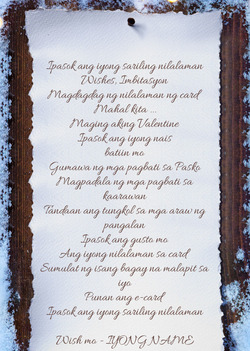 Ipasok ang iyong sariling nilalaman
Wishes, Imbitasyon
Magdagdag ng nilalaman ng card
Mahal kita ...
Maging aking Valentine
Ipasok ang iyong nais
batiin mo
Gumawa ng mga pagbati sa Pasko
Magpadala ng mga pagbati sa
kaarawan
Tandaan ang tungkol sa mga araw ng
pangalan
Ipasok ang gusto mo
Ang iyong nilalaman sa card
Sumulat ng isang bagay na malapit sa
iyo
Punan ang e-card
Ipasok ang iyong sariling nilalaman
Wish mo - IYONG NAME